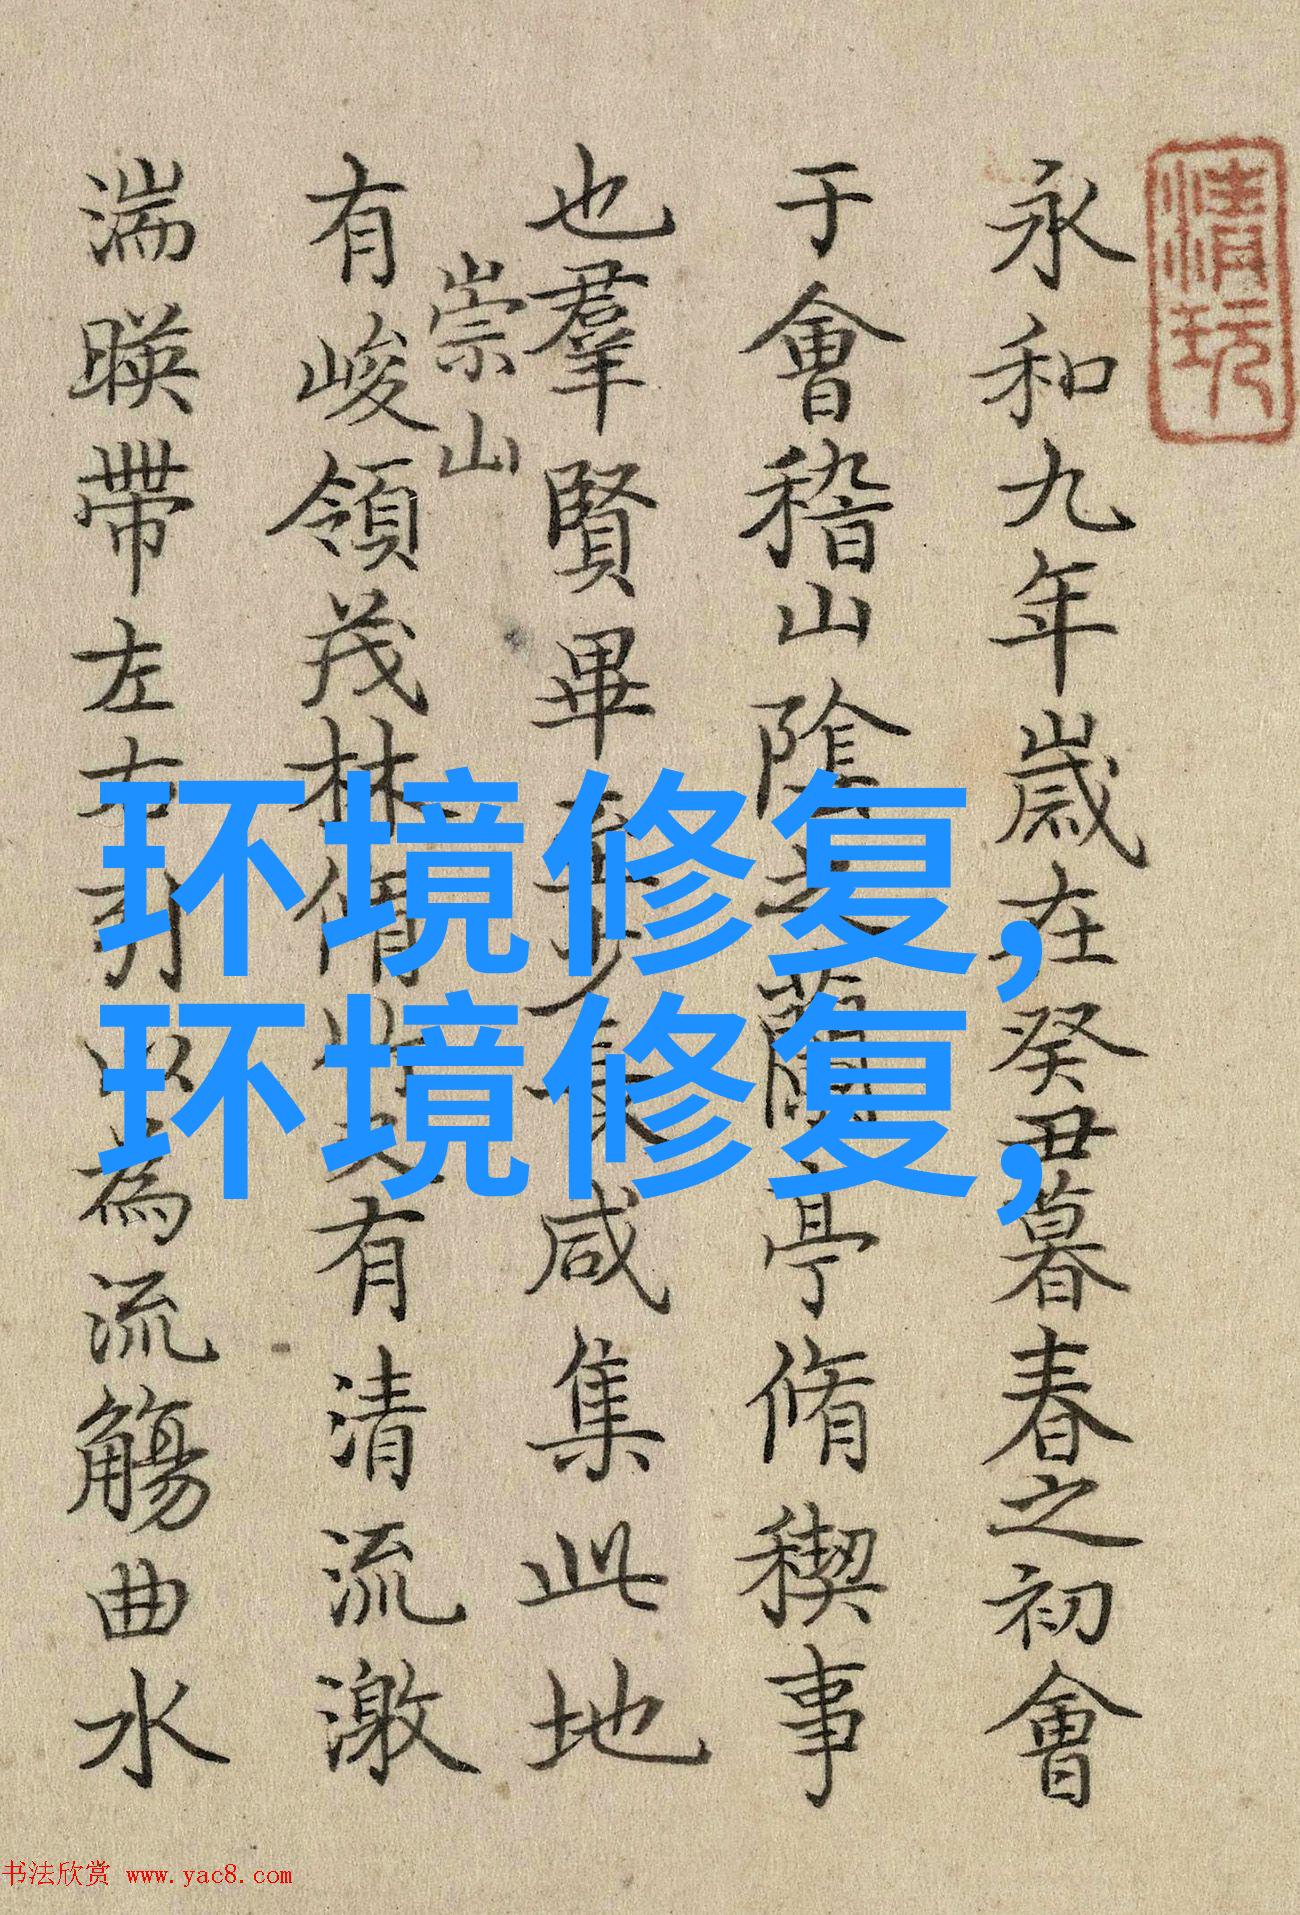 清玩
永和九年歲在癸丑暮春之初會
于會稽山陰之蘭亭脩稧事
也羣賢畢至少長咸集此地
崇山
有峻領茂林脩竹又有清流激
湍暎帶左右引以為流觴曲水
环境修复,
环境修复,
书法欣赏 www.yac8.com